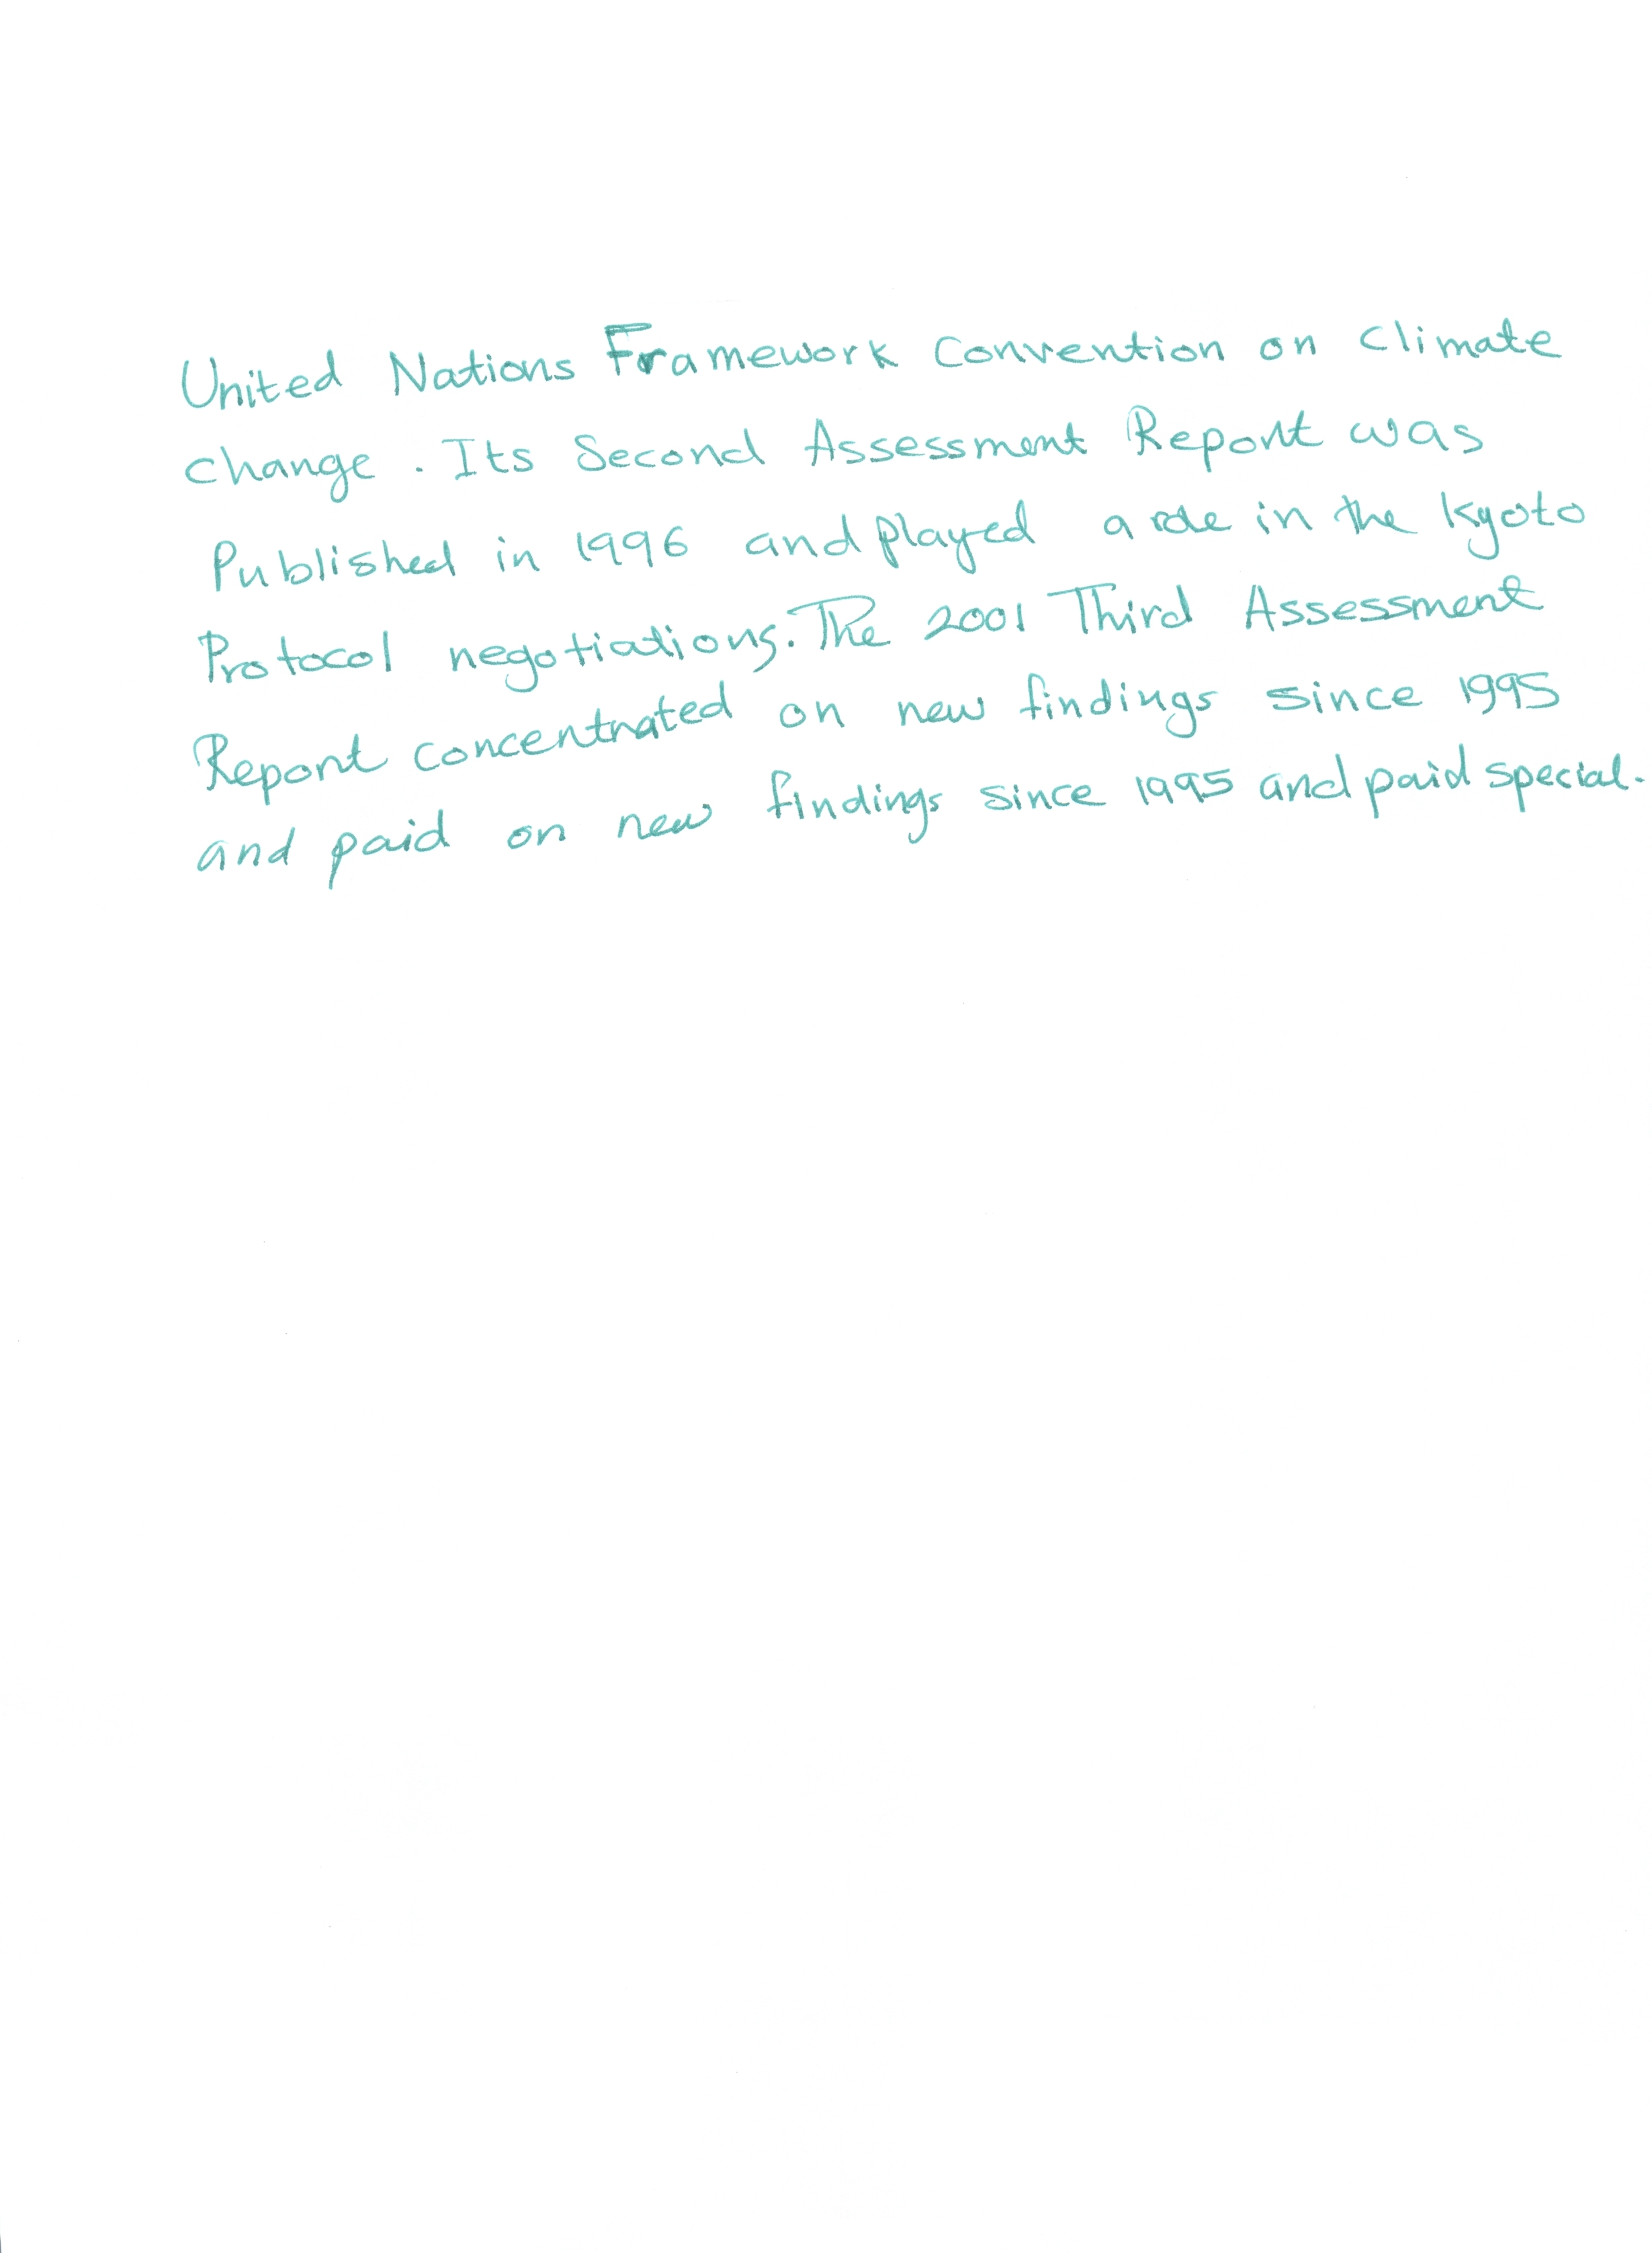 United Nations Framework Convention on Climate
change. Its Second Assessment Report was
Published in 1996 and played a role in the Kyoto
Protocol negotiations. The 2001 Third Assessment
Report concentrated on new findings since 1995
and paid on new findings since 1995 and paid special.